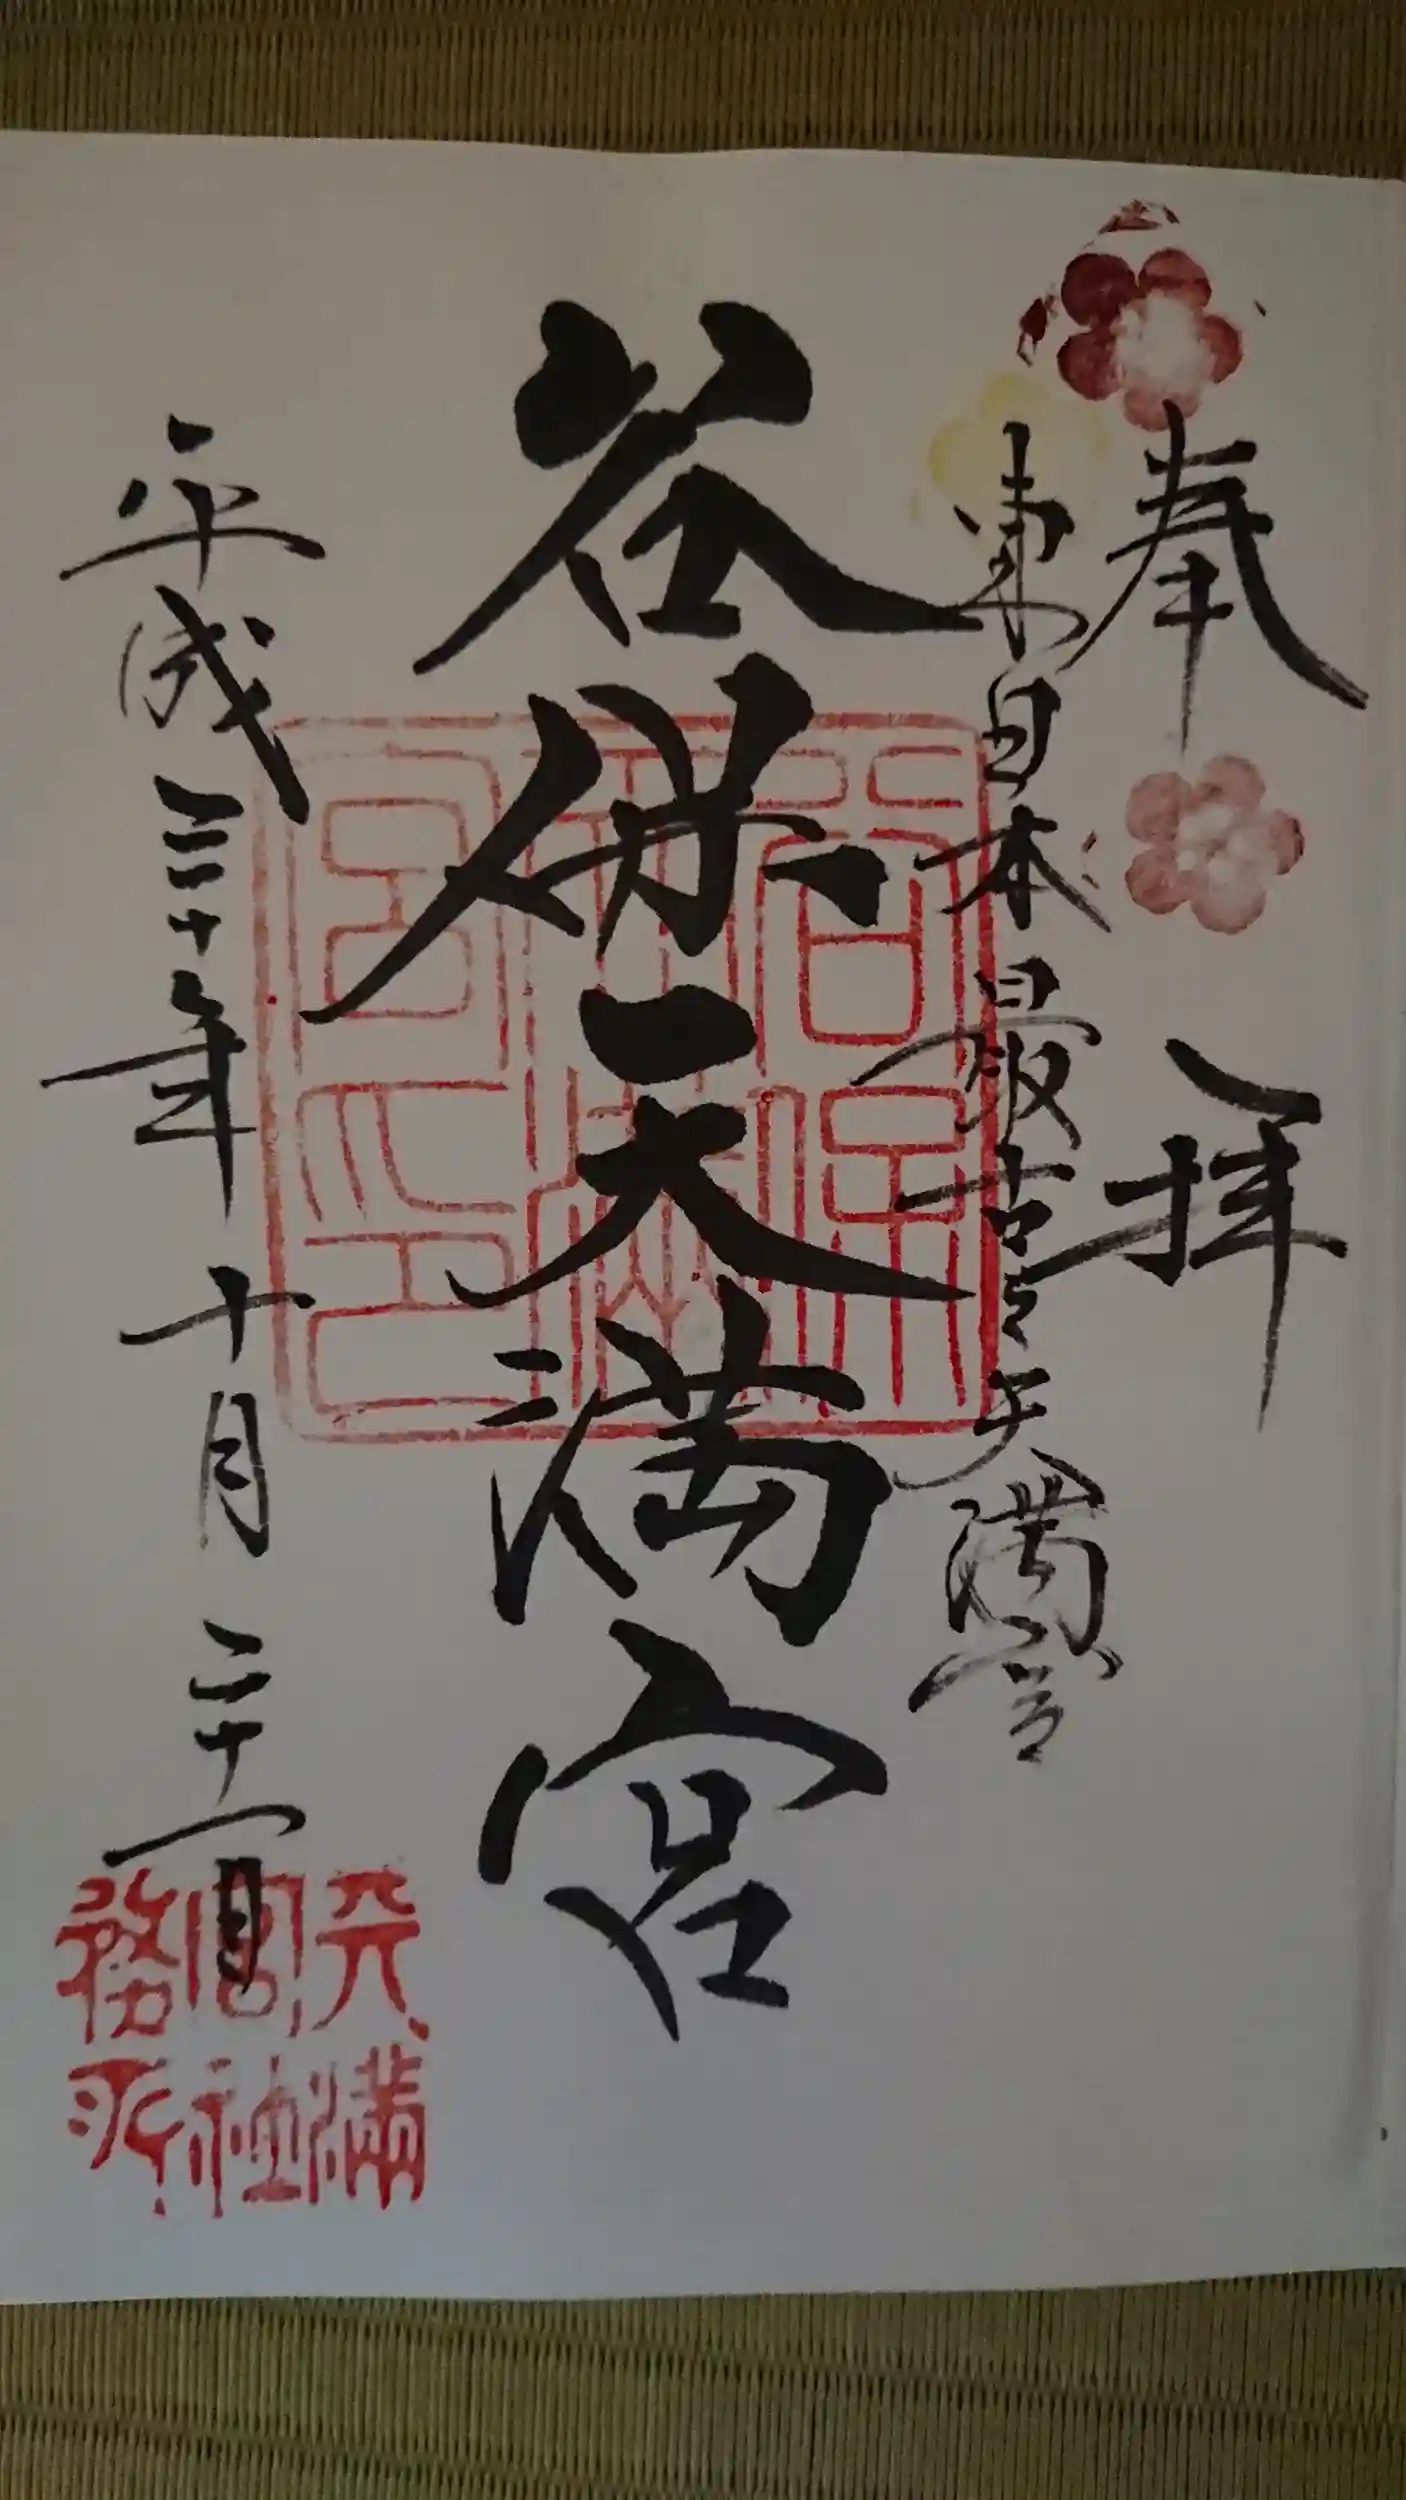 奉拝
東日本最古之天満宮
谷保天満宮
平成三十年十月二十一日
谷保
天満
宮印
天満
宮社
務所